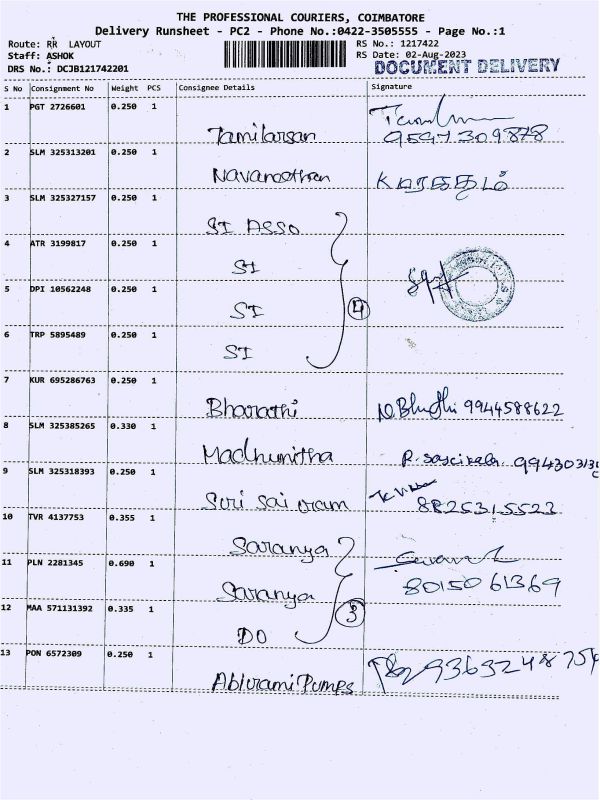 THE PROFESSIONAL COURIERS, COIMBATORE
Delivery Runsheet - PC2 - Phone No.:0422-3505555 - Page No.:1
Route: RR LAYOUT
Staff: ASHOK
DRS No.: DCJB121742201
RS No.: 1217422
RS Date: 02-Aug-2023
DOCUMENT DELIVERY
S No Consignment No Weight PCS Consignee Details Signature
1 PGT 2726601 0.250 1
Tamilarsan 9597309878
2 SLM 325313201 0.250 1
Navaneethan
3 SLM 325327157 0.250 1
SI ASSO
4 ATR 3199817 0.250 1
SI
5 DPI 10562248 0.250 1
SI 4
6 TRP 5895489 0.250 1
SI
7 KUR 695286763 0.250 1
Bharathi 9944588622
8 SLM 325385265 0.330 1
Madhumitha R. Sasikala
9 SLM 325318393 0.250 1
Suri sai ram 8825315523
10 TVR 4137753 0.355 1
Saranya
11 PLN 2281345 0.690 1
Saranya 8015061369
12 MAA 571131392 0.335 1
DO 3
13 PON 6572309 0.250 1
Abirami Pumps